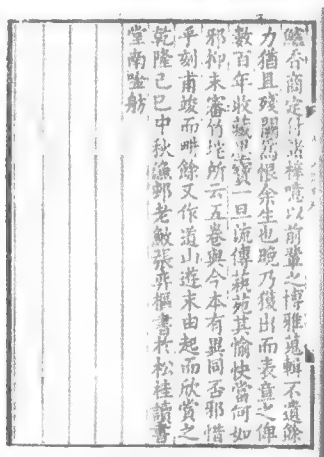 鮚香商定付諸梓噫以前輩之博雅蒐輯不遺餘
力猶且殘闕為恨余生也晚乃獲出而表章之俾
數百年收藏異寶一旦流傳藝苑其愉快當何如
邪抑未審竹垞所云五卷與今本有異同否邪惜
乎刻甫竣而畊餘又作道山遊末由起而欣賞之
乾隆己巳中秋漁邨老敏張弈樞書於松桂讀書
堂南噬舫